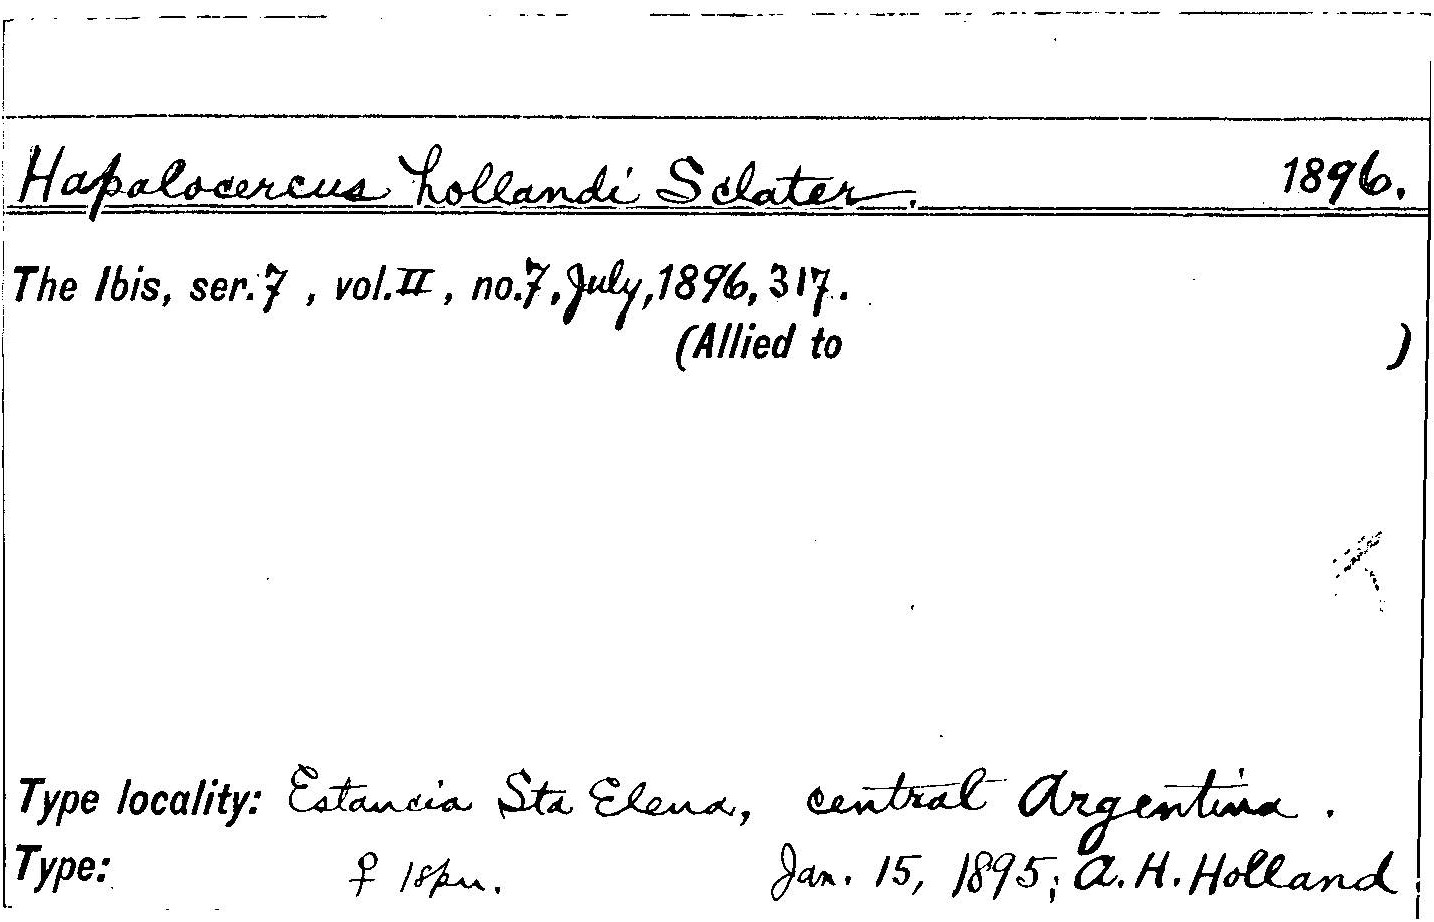 Hapalocercus hollandi Sclater. 1896.
The Ibis, ser. 7, vol. II, no. 7, July, 1896, 317.
(Allied to )
Type locality: Estancia Sta Elena, central Argentina.
Type: ♀ 1spn. Jan. 15, 1895; A. H. Holland